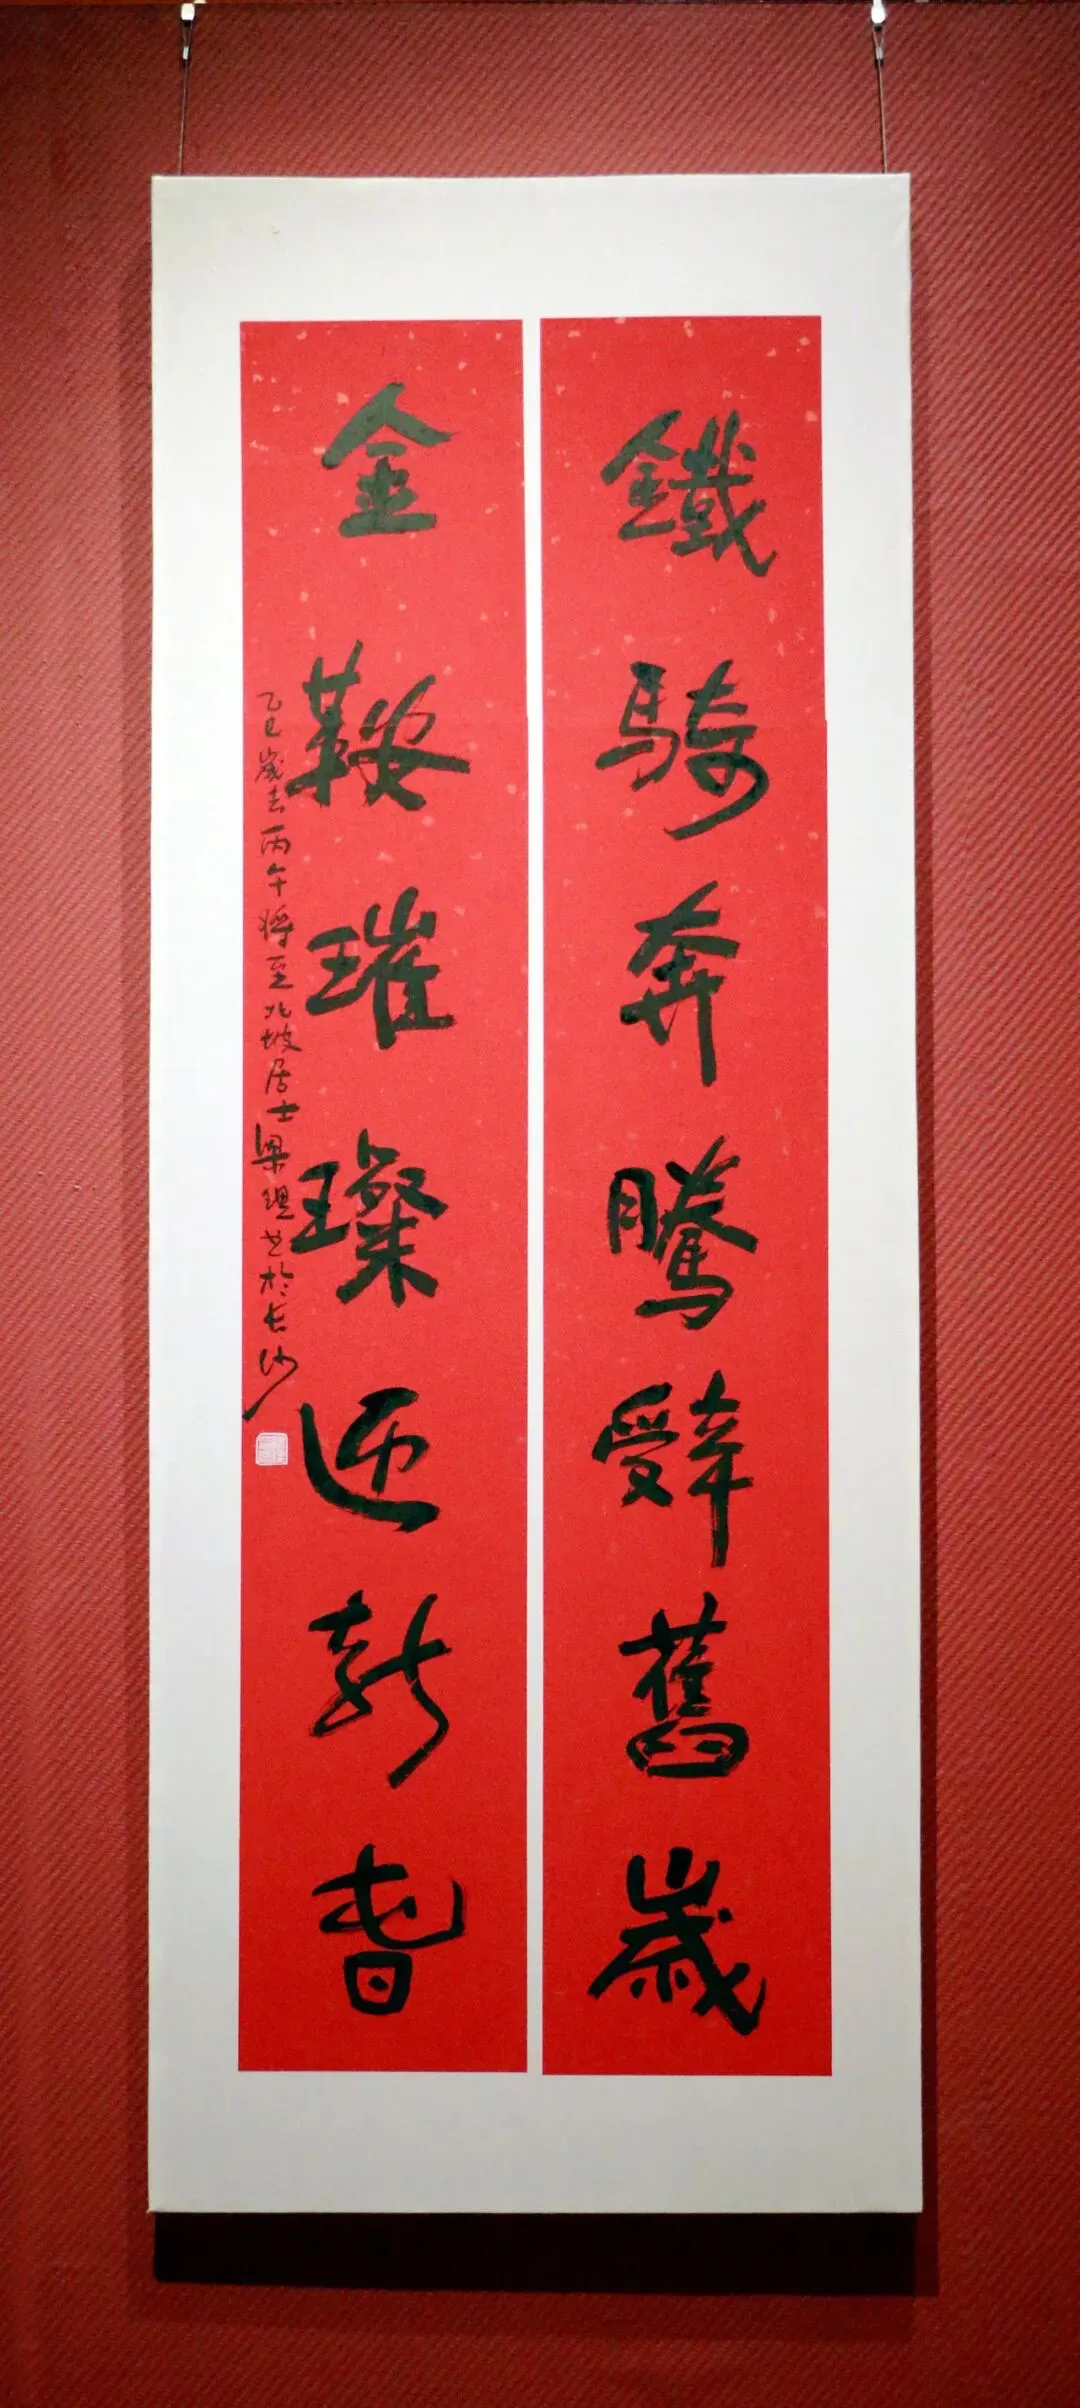 鐵騎奔騰辤舊歲
金鞍璀璨迎新春
乙巳歲去丙午將至北坡居士梁璟书於长沙